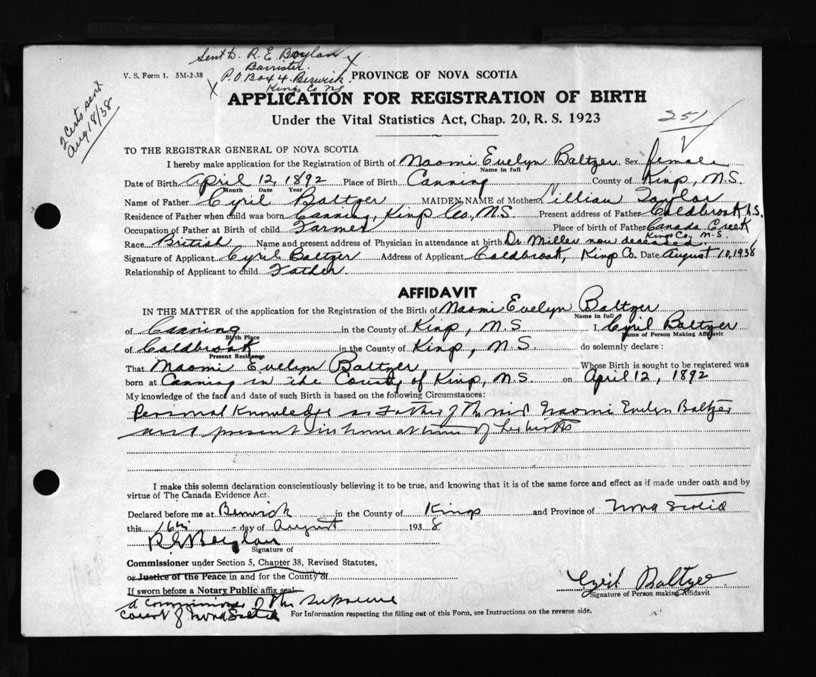 Sent to R. E. Boylan
Barrister
V. S. Form 1. 5M-2-38
P.O Box 4. Berwick
PROVINCE OF NOVA SCOTIA
King Co NS
2 Certs sent
Aug 18/38
APPLICATION FOR REGISTRATION OF BIRTH
Under the Vital Statistics Act, Chap. 20, R. S. 1923
251
TO THE REGISTRAR GENERAL OF NOVA SCOTIA
I hereby make application for the Registration of Birth of Naomi Evelyn Baltzer Sex female
Name in full
Date of Birth April 12, 1892 Place of Birth Canning County of Kings, N.S.
Month Date Year
Name of Father Cyril Baltzer MAIDEN NAME of Mother Lillian Taylor
Residence of Father when child was born Canning, Kings Co., N.S. Present address of Father Coldbrook N.S.
Occupation of Father at Birth of child Farmer Place of birth of Father Canada Creek
Kings Co, N.S.
Race British Name and present address of Physician in attendance at birth Dr. Miller now deceased.
Signature of Applicant Cyril Baltzer Address of Applicant Coldbrook, Kings Co. Date August 10, 1938
Relationship of Applicant to child Father
AFFIDAVIT
IN THE MATTER of the application for the Registration of the Birth of Naomi Evelyn Baltzer
Name in full
of Canning in the County of Kings, N.S. I, Cyril Baltzer
Birth Place Name of Person Making Affidavit
of Coldbrook in the County of Kings, N.S. do solemnly declare:
Present Residence
That Naomi Evelyn Baltzer Whose Birth is sought to be registered was
born at Canning in the County of Kings, N.S. on April 12, 1892
My knowledge of the fact and date of such Birth is based on the following Circumstances:
Personal Knowledge as Father of the said Naomi Evelyn Baltzer
and present in home at time of her birth
I make this solemn declaration conscientiously believing it to be true, and knowing that it is of the same force and effect as if made under oath and by
virtue of The Canada Evidence Act.
Declared before me at Berwick in the County of Kings and Province of Nova Scotia
this 16th day of August 1938
R E Boylan
Signature of
Commissioner under Section 5, Chapter 38, Revised Statutes,
or Justice of the Peace in and for the County of
If sworn before a Notary Public affix seal.
Cyril Baltzer
Signature of Person making Affidavit
A Commissioner of the Supreme
Court of Nova Scotia
For Information respecting the filling out of this Form, see Instructions on the reverse side.